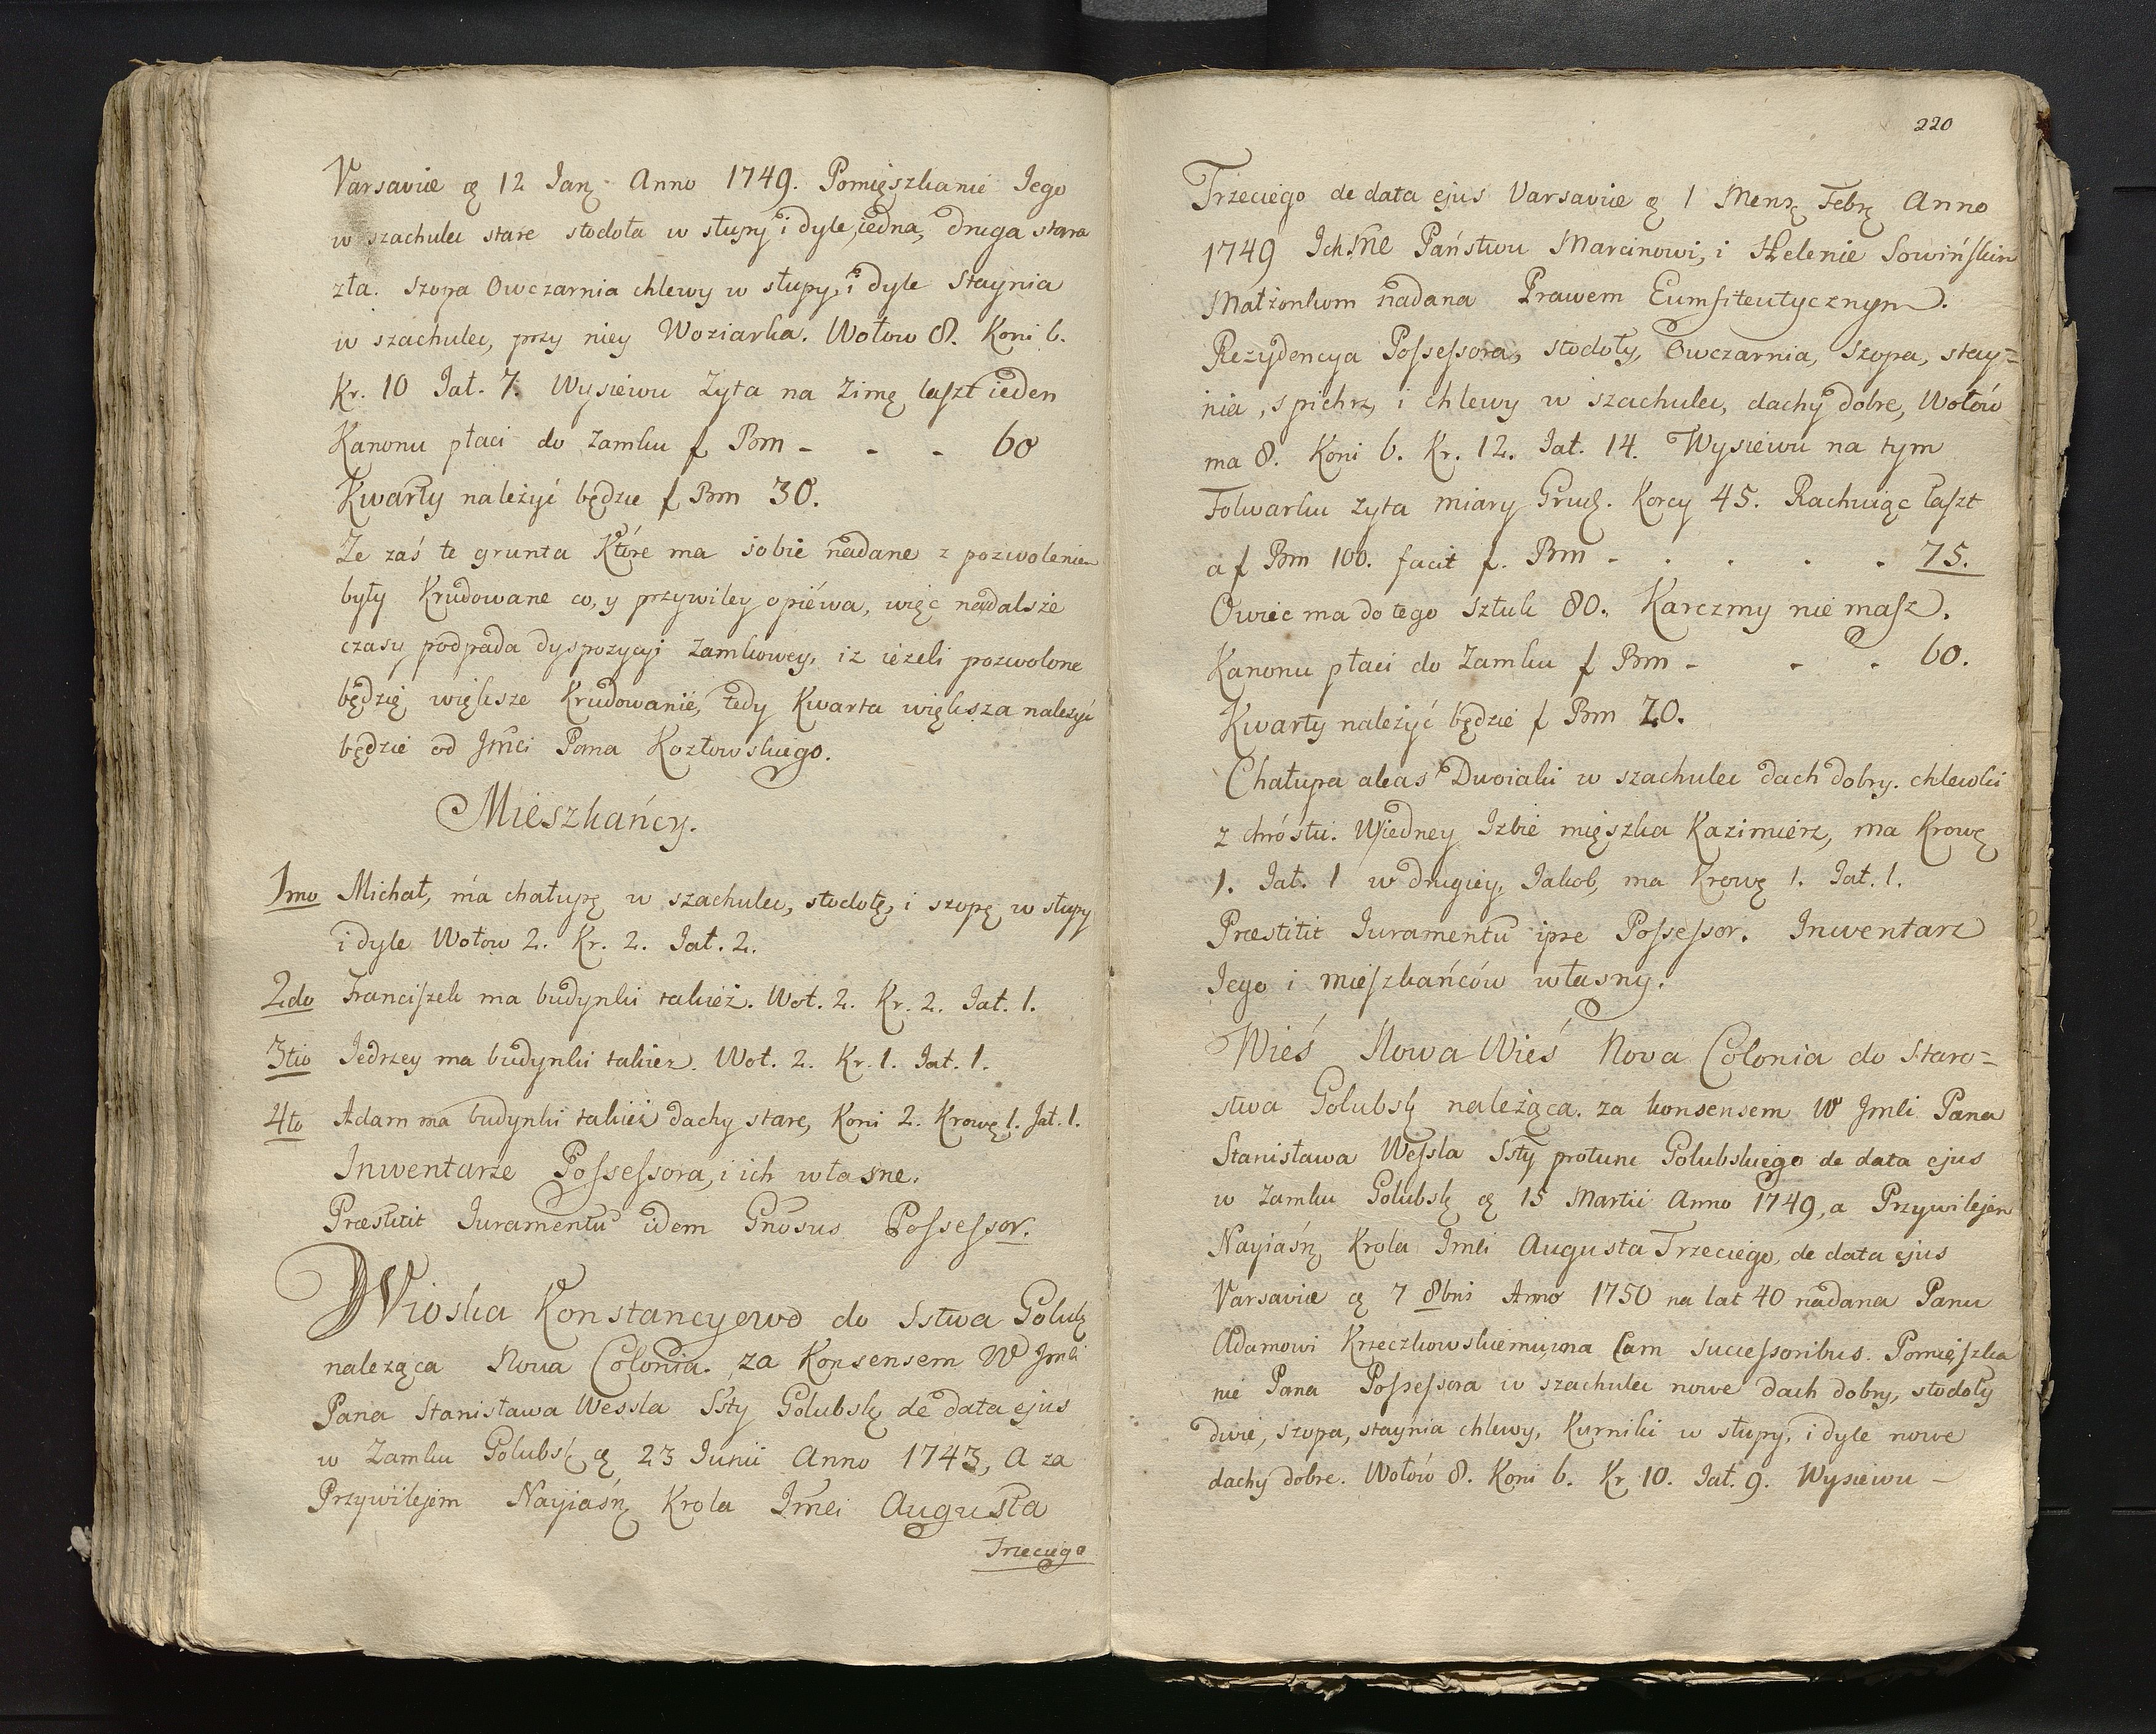 Varsaviæ ę 12 Janę Anno 1749. Pomięszkanie Jego
w szachulec stare stodoła w słupy i dyle, iedna, druga stara
zła. Szopa Owczarnia chlewy w słupy, i dyle Staynia
w szachulec, przy niey Woziarka. Wołow 8. Koni 6.
Kr. 10 Jał. 7. Wysiewu Zyta na Zimę laszt ieden
Kanonu płaci do Zamku f Bm - - - 60
Kwarty należyć będzie f Bm 30.
Ze zaś te grunta Które ma sobie nadane z pozwoleniem
były Krudowane co, y przywiley opiéwa, więc nadalsze
czasy podpada dyspozycyi Zamkowey, iz iezeli pozwolone
będzię większe Krudowanie, tedy Kwarta większa należyć
będzie od Jmci Pana Kozłowskiego.
Mieszkańcy.
1mo Michał, ma chałupę w szachulec, stodołę, i szopę w słupy
i dyle Wołow 2. Kr. 2. Jał. 2.
2do Franciszek ma budynki takież. Woł. 2. Kr. 2. Jał. 1.
3tio Jedrzey ma budynki takiez. Woł. 2. Kr. 1. Jał. 1.
4to Adam ma budynki takież dachy stare, Koni 2. Krowę 1. Jał. 1.
Inwentarze Possessora, i ich własne.
Præstitit Juramentu idem Gnosus Possessor.
Wioska Konstancyewo do Sstwa Golubę
należąca Nova Colonia. za Konsensem W Jmci
Pana Stanisława Wessla Ssty Golubskę de data ejus
w Zamku Golubsk ę 23 Junii Anno 1743, A za
Przywilejem Nayiaśnę Krola Jmci Augusta
Trzeciego
220
Trzeciego de data ejus Varsaviæ ę 1 Mensę Febrę Anno
1749 Ichsne Państwu Marcinowi, i Helenie Sowińskim
Małżonkom nadana Prawem Eumfiteutycznym.
Rezydencya Possessora, stodoły, Owczarnia, Szopa, stay=
nia, spichrz, i chlewy w szachulec, dachy dobre, Wołów
ma 8. Koni 6. Kr. 12. Jał. 14. Wysiewu na tym
Folwarku zyta miary Grudę. Korcy 45. Rachuiąc laszt
a f Bm 100. facit f. Bm - . . . . 75.
Owiec ma do tego Sztuk 80. Karczmy nie masz.
Kanonu płaci do Zamku f Bm - - - 60.
Kwarty należyć będzie f Bm 20.
Chałupa aleas Dwoiaki w szachulec dach dobry. chlewki
z chróstu. W iedney Izbie mięszka Kazimierz, ma Krowę
1. Jał. 1 w drugiey, Jakob, ma Krowę 1. Jał. 1.
Præstitit Juramentu ipse Possessor. Inwentarz
Jego i mieszkańców własny.
Wieś Nowa Wieś Nova Colonia do Staro=
stwa Golubskę należąca. za konsensem W Jmci Pana
Stanisława Wessla Ssty protunc Golubskiego de data ejus
w Zamku Golubskę ę 15 Martii Anno 1749, a Przywilejem
Nayiaśnę Krola Jmci Augusta Trzeciego, de data ejus
Varsaviæ ę 7 8bris Anno 1750 na lat 40 nadana Panu
Adamowi Krzeczkowskiemu, una Cum successoribus. Pomieszka
nie Pana Possessora w szachulec nowe dach dobry, stodoły
dwie, szopa, staynia chlewy, Kurniki w słupy, i dyle nowe
dachy dobre. Wołów 8. Koni 6. Kr. 10. Jał. 9. Wysiewu -